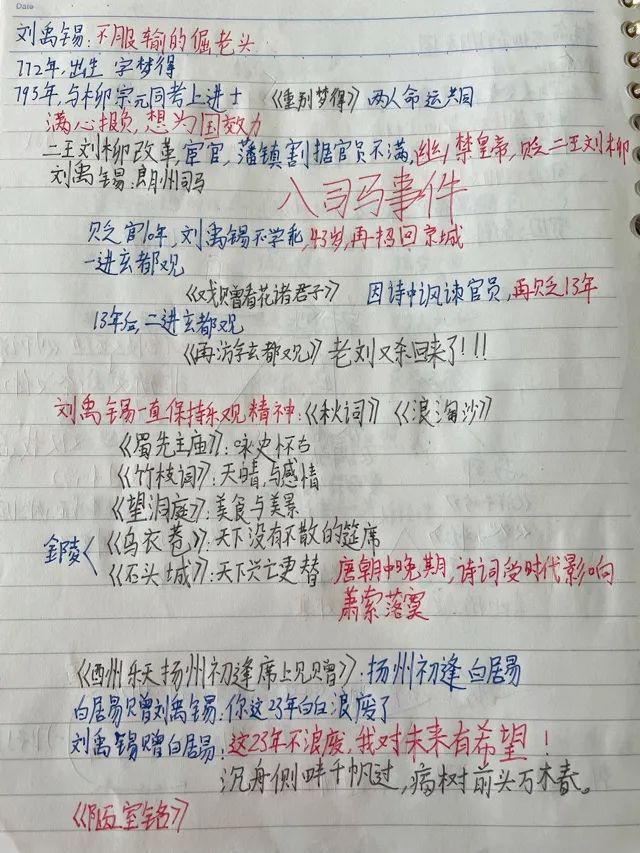 Date
刘禹锡:不服输的倔老头
772年,出生 字梦得
793年,与柳宗元同考上进士 《重别梦得》 两人命运共同
满心抱负,想为国效力
二王刘柳改革,宦官,藩镇割据官员不满,幽禁皇帝,贬二王刘柳
刘禹锡:朗州司马
八司马事件
贬官10年,刘禹锡不学乖,43岁,再招回京城
一进玄都观
《戏赠看花诸君子》 因诗中讽谏官员,再贬13年
13年后,二进玄都观
《再游玄都观》 老刘又杀回来了!!!
刘禹锡一直保持乐观精神:《秋词》《浪淘沙》
《蜀先主庙》:咏史怀古
《竹枝词》:天晴,与感情
《望洞庭》:美食与美景
金陵
《乌衣巷》:天下没有不散的筵席
《石头城》:天下兴亡更替 唐朝中晚期,诗词受时代影响
萧索落寞
《酉州乐天扬州初逢席上见赠》:扬州初逢白居易
白居易赠刘禹锡:你这23年白白浪废了
刘禹锡赠白居易:这23年不浪废,我对未来有希望!
沉舟侧畔千帆过,病树前头万木春。
《陋室铭》